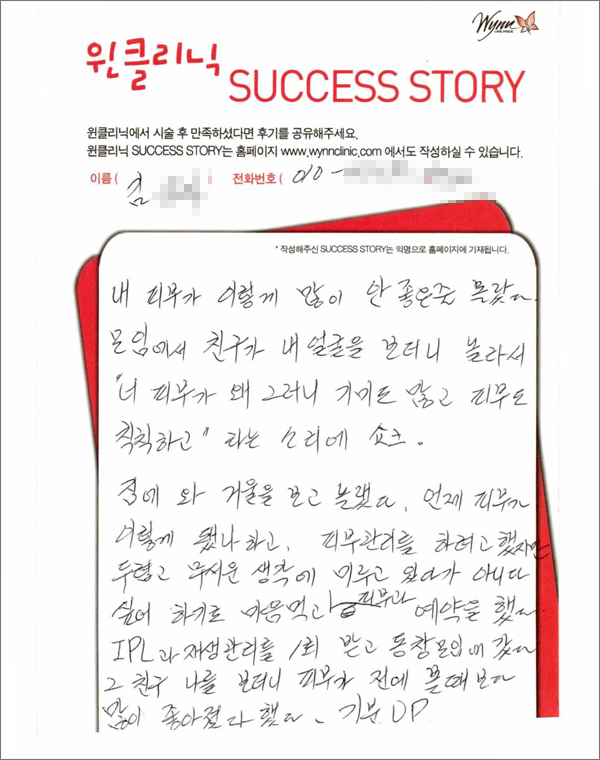 Wynn
윈클리닉
SUCCESS STORY
윈클리닉에서 시술 후 만족하셨다면 후기를 공유해주세요.
윈클리닉 SUCCESS STORY는 홈페이지 www.wynnclinic.com 에서도 작성하실 수 있습니다.
이름 ( 김 ) 전화번호 ( 010 -
* 작성해주신 SUCCESS STORY는 익명으로 홈페이지에 기재됩니다.
내 피부가 이렇게 많이 안 좋은줄 몰랐다.
모임에서 친구가 내 얼굴을 보더니 놀라서
"너 피부가 왜 그러니 기미도 많고 피부도
칙칙하고" 라는 소리에 쇼크.
집에 와 거울을 보고 놀랬다. 언제 피부가
이렇게 됐나하고. 피부관리를 하려고 했지만
두렵고 무서운 생각에 미루고 있다가 아니다
싶어 하기로 마음먹고 피부과 예약을 했다.
IPL과 재생관리를 1회 받고 동창모임에 갔다
그 친구 나를 보더니 피부가 전에 볼때보다
많이 좋아졌다 했다. 기분 UP